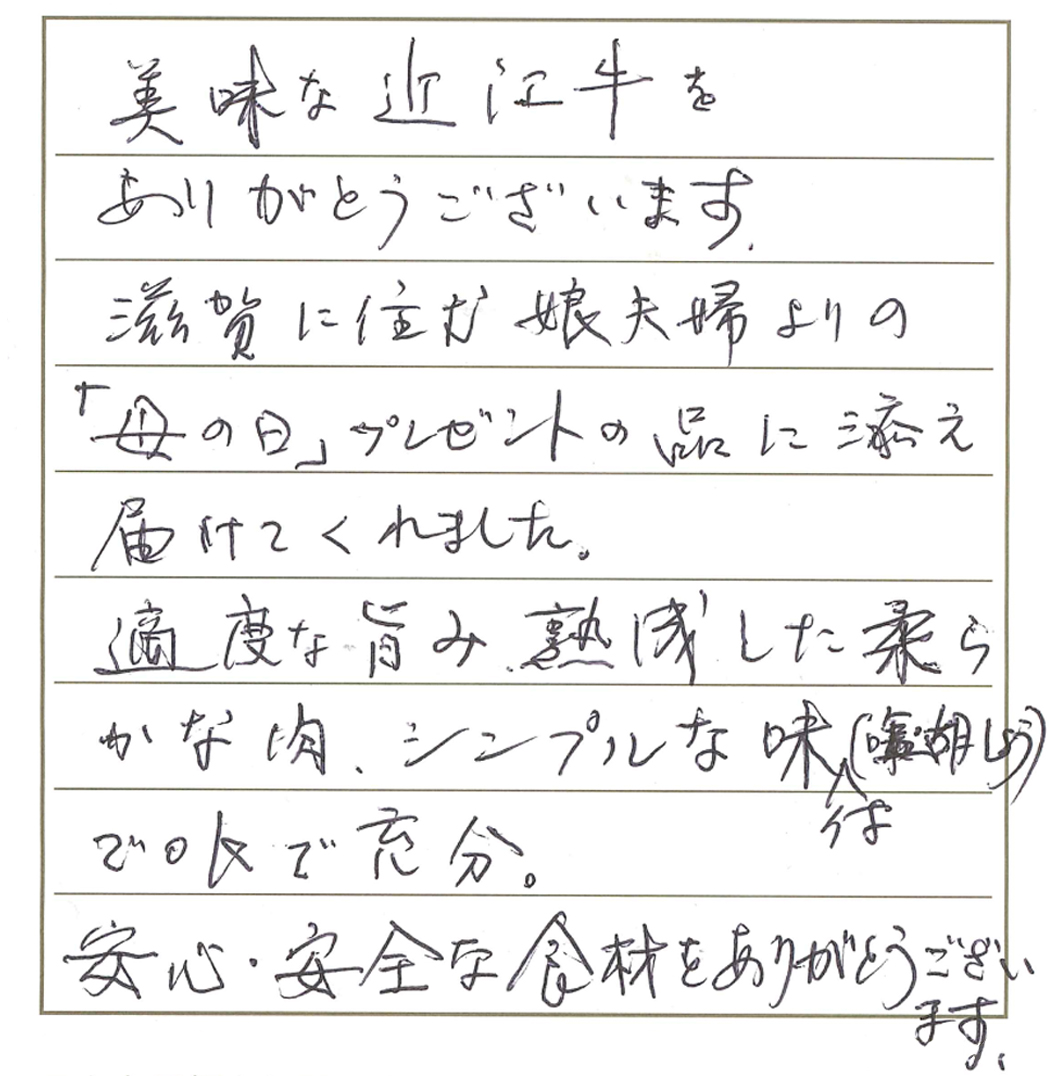 美味な近江牛を
ありがとうございます.
滋賀に住む娘夫婦よりの
「母の日」プレゼントの品に添え
届けてくれました。
適度な旨み熟成した柔ら
かな肉、シンプルな味付(塩胡しょう)
でOKで充分。
安心・安全な食材をありがとうござい
ます.